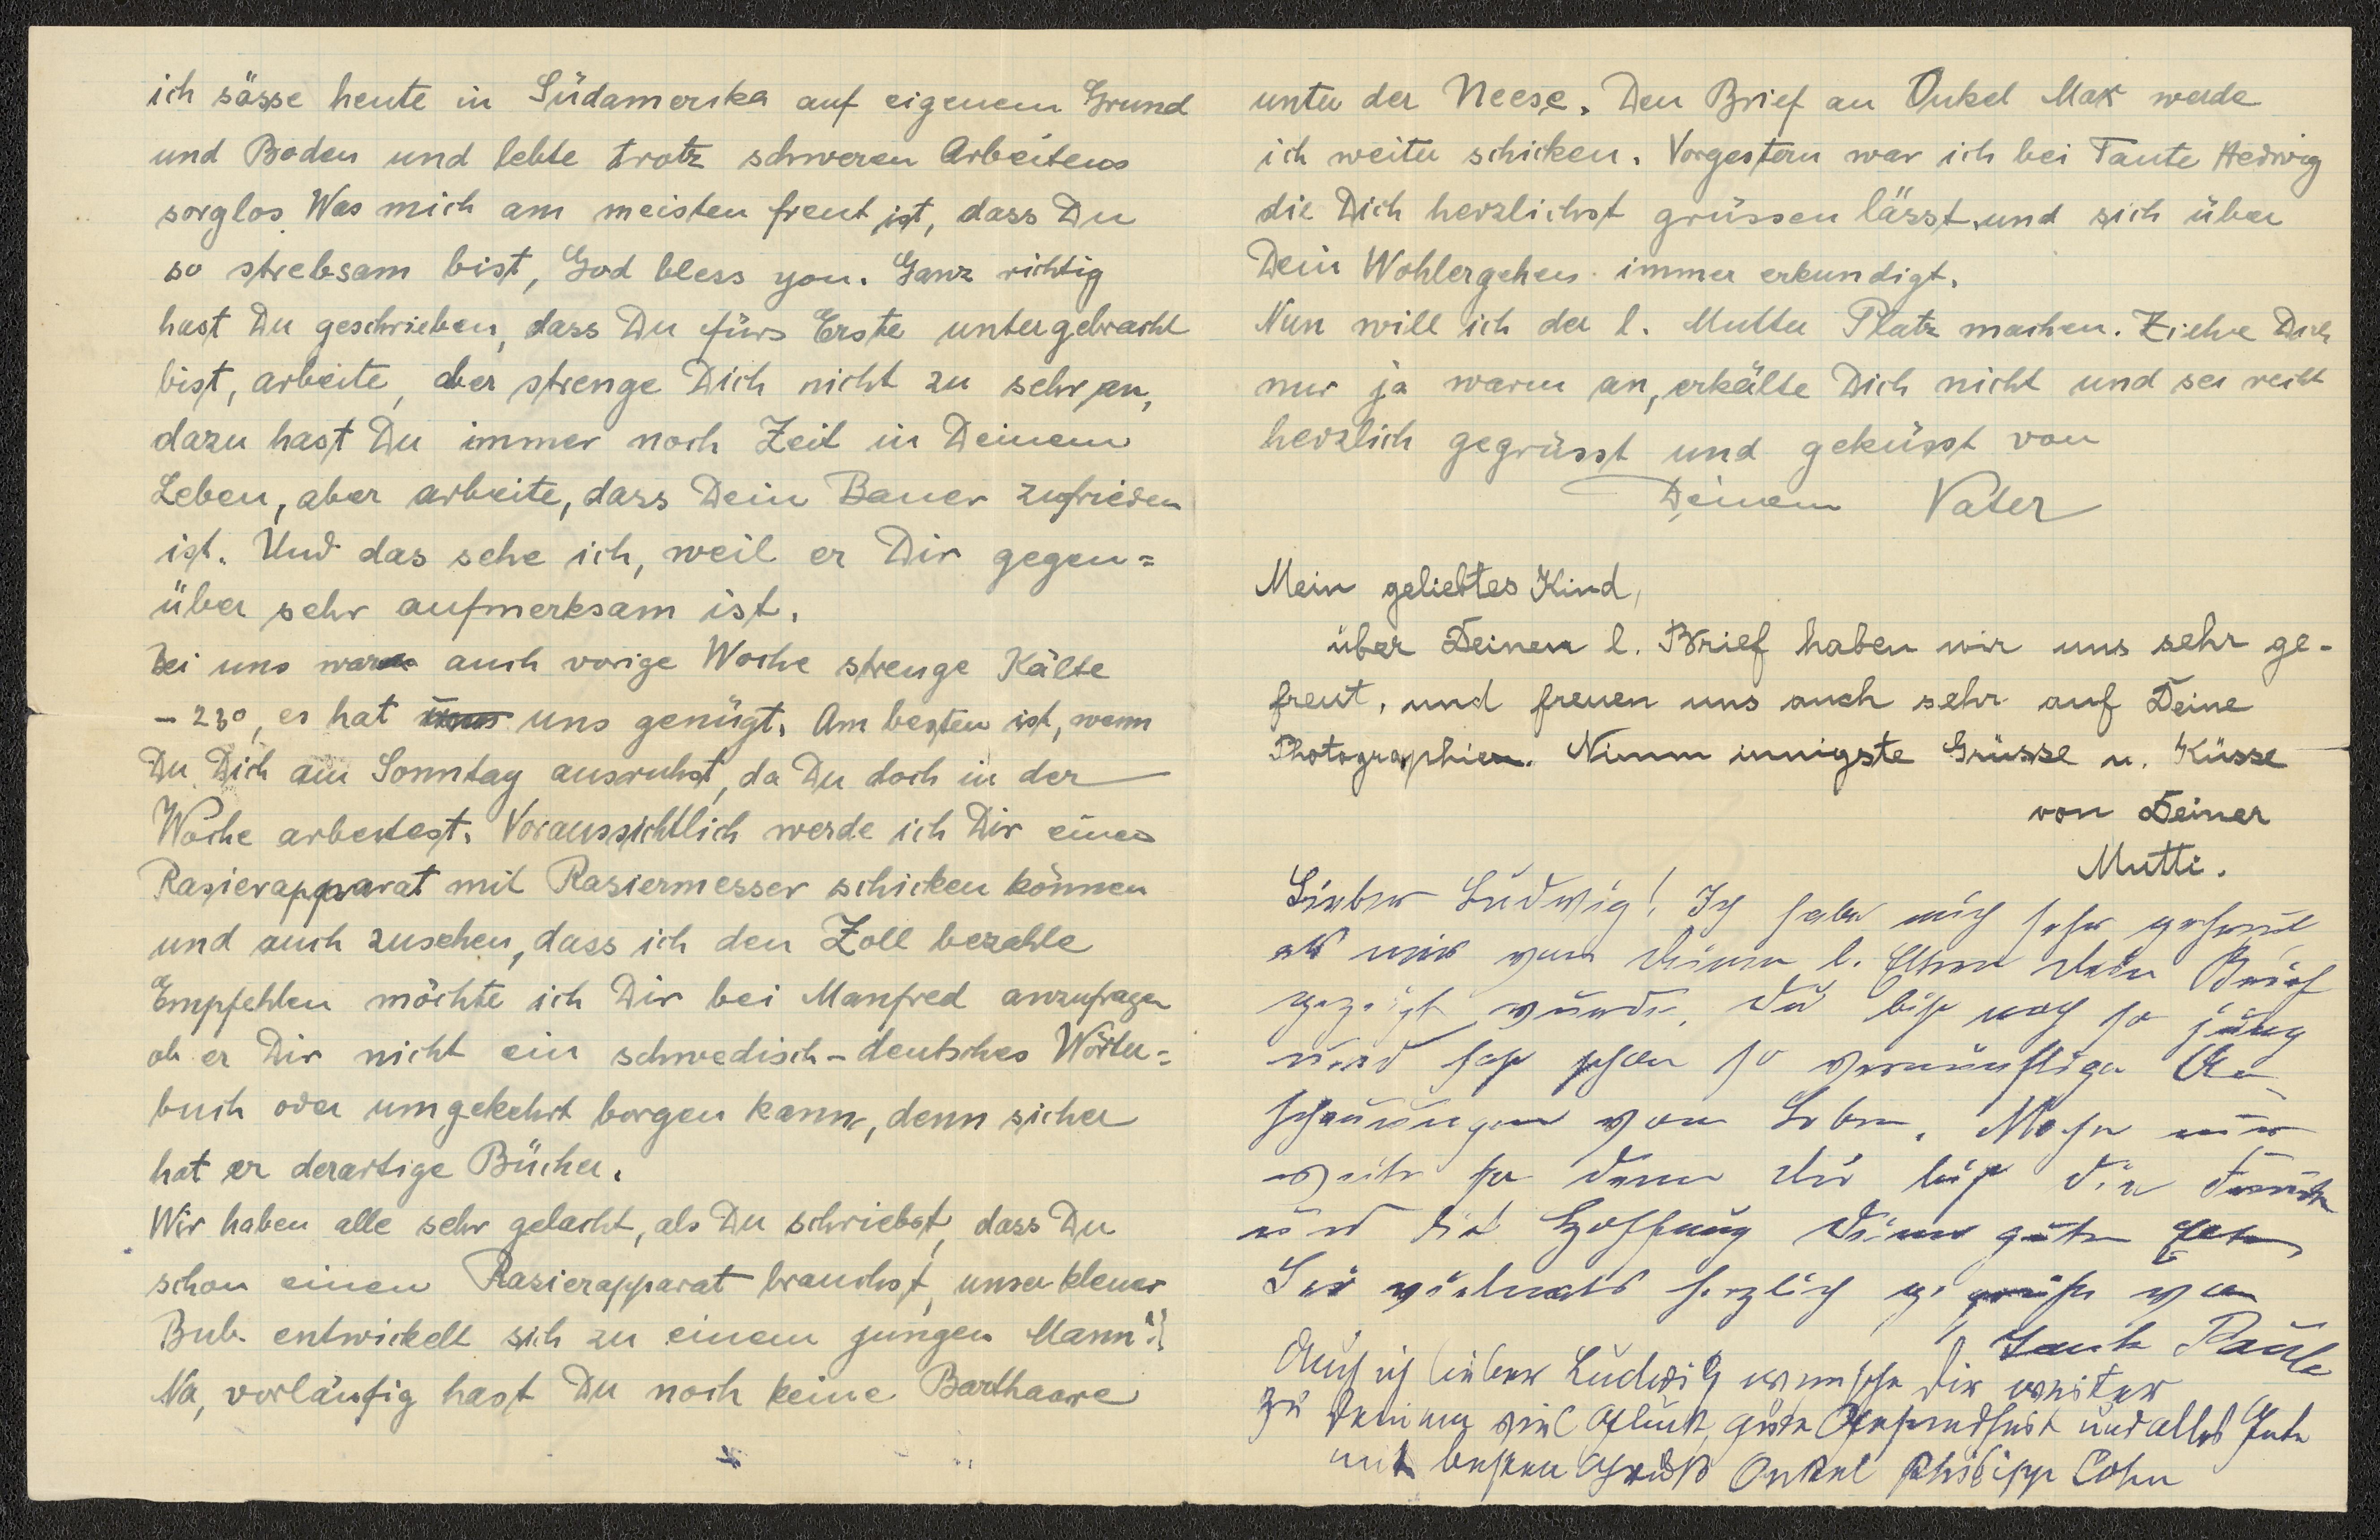 ich sässe heute in Südamerika auf eigenem Grund
und Boden und lebte trotz schweren Arbeitens
sorglos. Was mich am meisten freut ist, dass Du
so strebsam bist, God bless you. Ganz richtig
hast Du geschrieben, dass Du fürs Erste untergebracht
bist, arbeite, aber strenge Dich nicht zu sehr an,
dazu hast Du immer noch Zeit in Deinem
Leben, aber arbeite, dass Dein Bauer zufrieden
ist. Und das sehe ich, weil er Dir gegen=
über sehr aufmerksam ist.
Bei uns war auch vorige Woche strenge Kälte
- 23°, es hat uns genügt. Am besten ist, wenn
Du Dich am Sonntag ausruhst, da Du doch in der
Woche arbeitest. Voraussichtlich werde ich Dir einen
Rasierapparat mit Rasiermesser schicken können
und auch zusehen, dass ich den Zoll bezahle
Empfehlen möchte ich Dir bei Manfred anzufragen
ob er Dir nicht ein schwedisch-deutsches Wörter=
buch oder umgekehrt borgen kann, denn sicher
hat er derartige Bücher.
Wir haben alle sehr gelacht, als Du schriebst, dass Du
schon einen Rasierapparat brauchst, unser kleiner
Bub entwickelt sich zu einem jungen Mann"!
Na, vorläufig hast Du noch keine Barthaare
unter der Neese. Den Brief an Onkel Max werde
ich weiter schicken. Vorgestern war ich bei Tante Hedwig
die Dich herzlichst grüssen lässt und sich über
Dein Wohlergehen immer erkundigt.
Nun will ich der l. Mutter Platz machen. Ziehe Dich
nur ja warm an, erkälte Dich nicht und sei recht
herzlich gegrüsst und geküsst von
Deinem Vater
Mein geliebtes Kind,
über Deinen l. Brief haben wir uns sehr ge-
freut, und freuen uns auch sehr auf Deine
Photographien. Nimm innigste Grüsse u. Küsse
von Deiner
Mutti.
Lieber Ludwig! Ich habe mich sehr gefreut
als mir von Deinen l. Eltern Dein Brief
gezeigt wurde. Du bist noch so jung
und hast schon so vernünftige An-
schauungen vom Leben. Mache nur
weiter so denn Du bist die Freude
und die Hoffnung Deiner guten Eltern
Sei vielmals herzlich gegrüßt von
Tante Paula
Auch ich lieber Ludwig wünsche Dir weiter
zu Deinem viel Glück, gute Gesundheit und alles Gute
mit besten Gruß Onkel Philipp Cohn